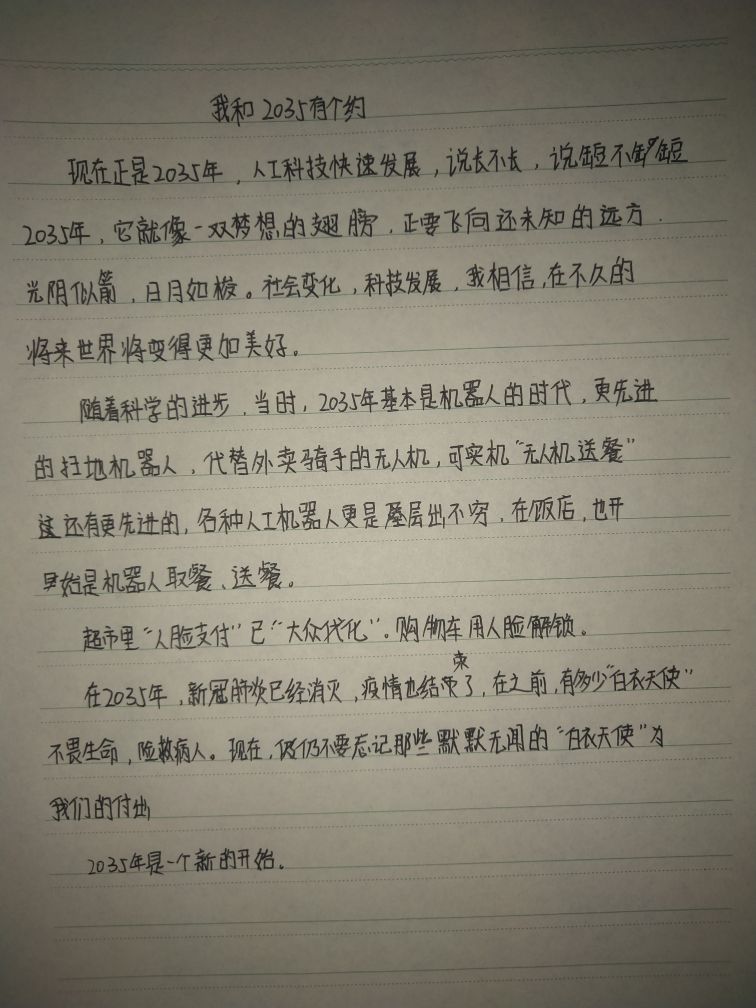 我和2035有个约
现在正是2035年，人工科技快速发展，说长不长，说短不短
2035年，它就像一双梦想的翅膀，正要飞向还未知的远方.
光阴似箭，日月如梭。社会变化，科技发展，我相信，在不久的
将来世界将变得更加美好。
随着科学的进步，当时，2035年基本是机器人的时代，更先进
的扫地机器人，代替外卖骑手的无人机，可实机“无人机送餐”
这还有更先进的，各种人工机器人更是层出不穷，在饭店，也开
始是机器人取餐、送餐。
超市里“人脸支付”已“大众代化”。购物车用人脸解锁。
在2035年，新冠肺炎已经消灭，疫情也结束了，在之前，有多少“白衣天使”
不畏生命，险救病人。现在，仍不要忘记那些默默无闻的“白衣天使”为
我们的付出
2035年是一个新的开始。